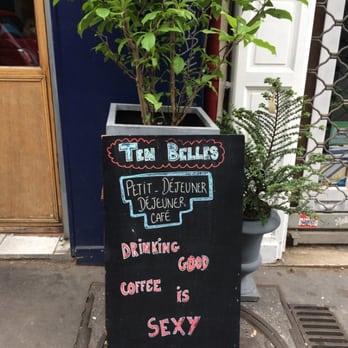 TEN BELLES
PETIT-DÉJEUNER
DÉJEUNER
CAFÉ
DRINKING GOOD
COFFEE IS
SEXY